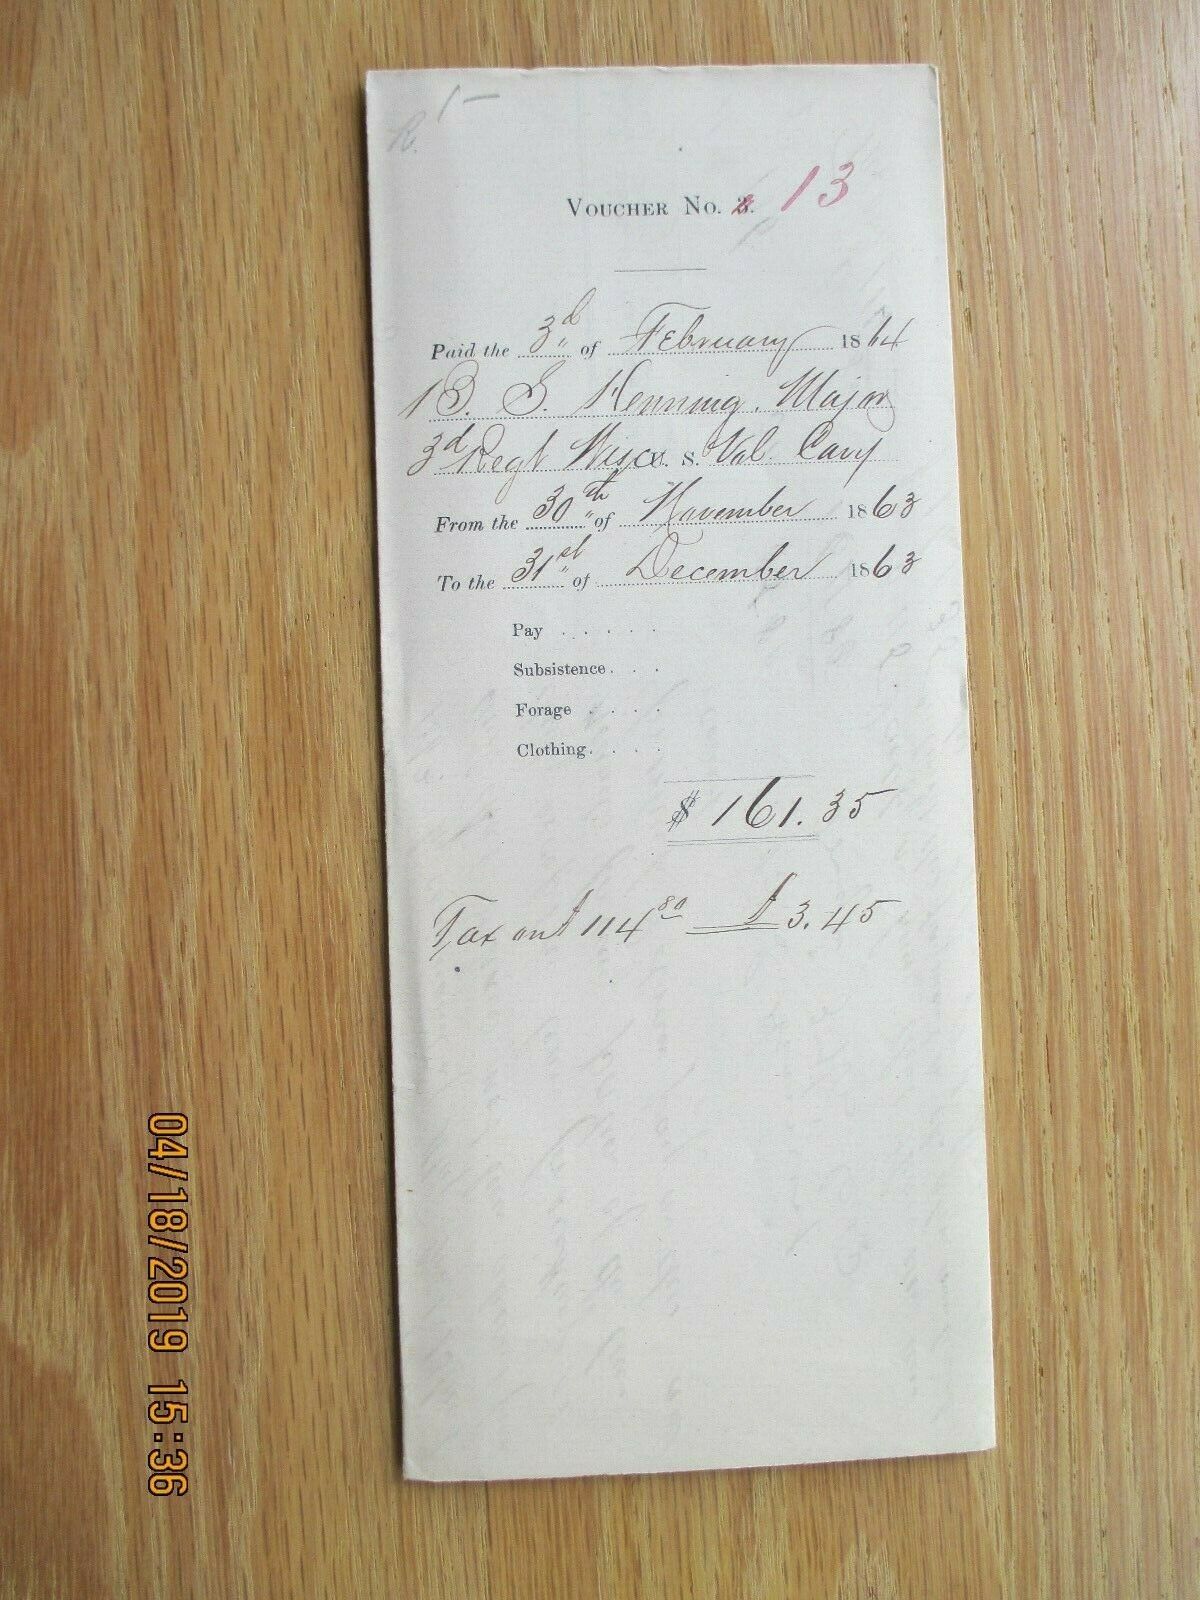 1—
R.
VOUCHER No. 3. 13
Paid the 3d of February 1864
B. S. Henning, Major
3d Regt Wisc. S. Vol. Cavy
From the 30th of November 1863
To the 31st of December 1863
Pay . . . . . .
Subsistence . . .
Forage . . . .
Clothing . . . .
$ 161.35
Tax on $ 114 80 $ 3.45
04/18/2019 15:36